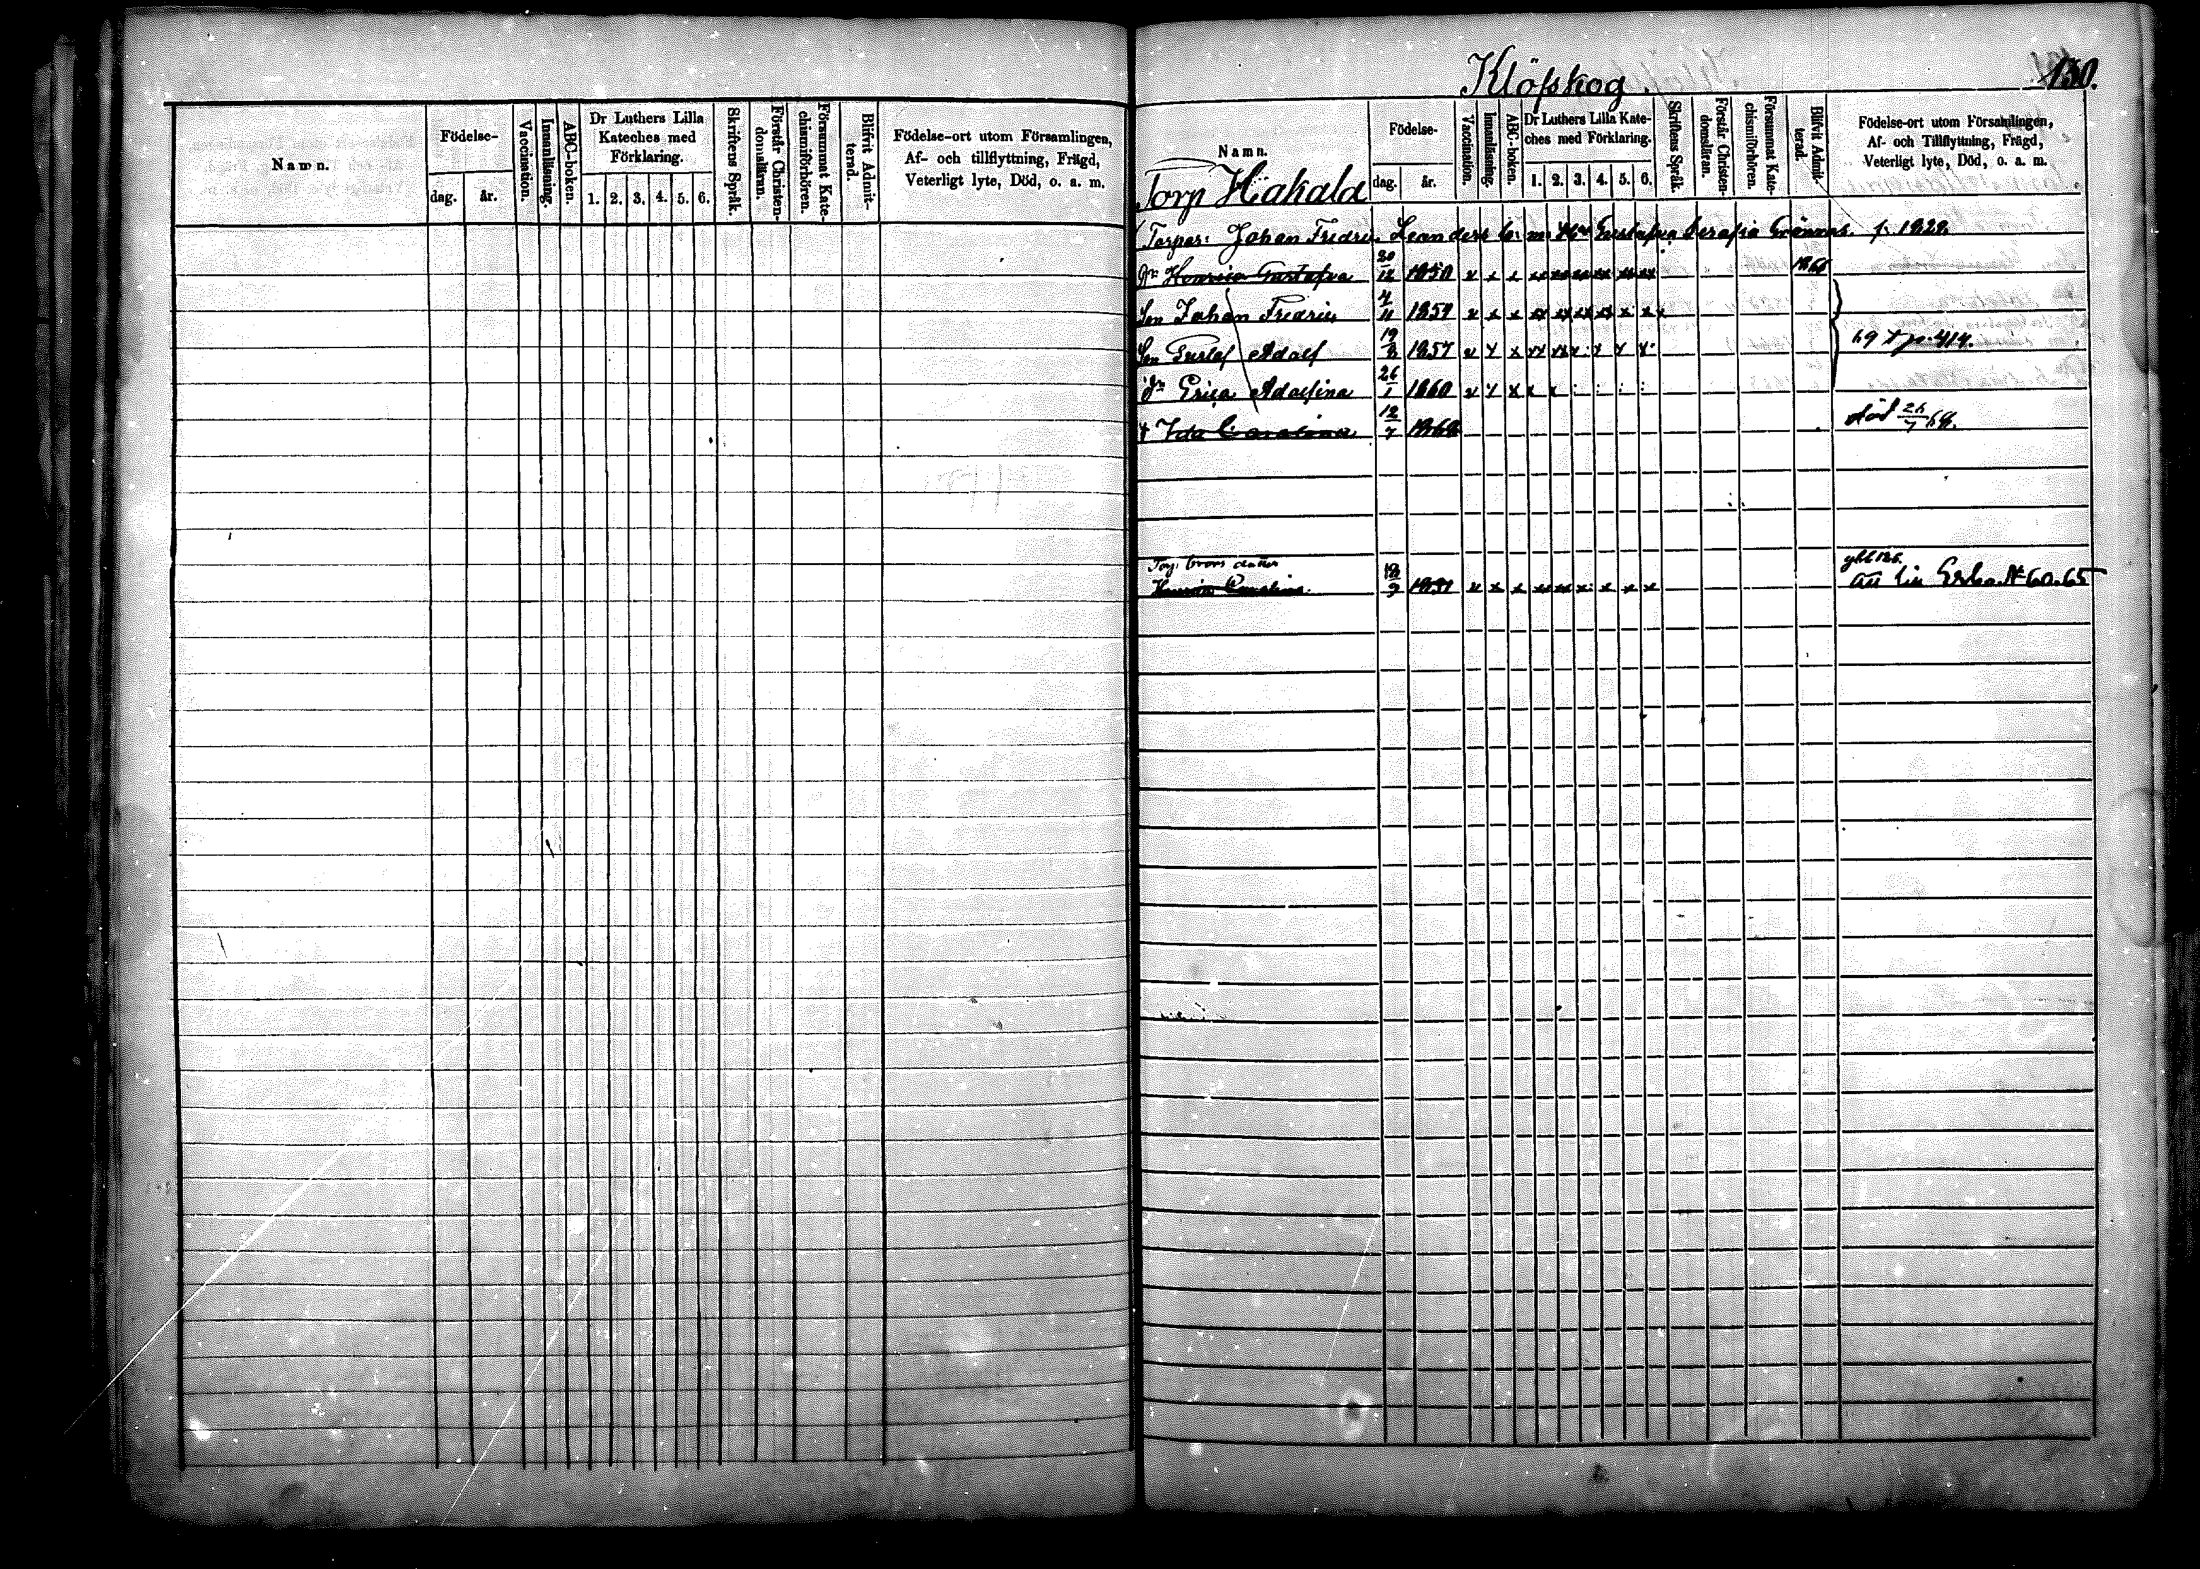 Namn.
Födelse-
dag. år.
Vaccination.
Innanläsning.
ABC-boken.
Dr Luthers Lilla Kateches med Förklaring.
1. 2. 3. 4. 5. 6.
Skriftens Språk.
Förstår Christen-domsläran.
Försummat Kate-chismiförhören.
Blifvit Admit-terad.
Födelse-ort utom Församlingen,
Af- och tillflyttning, Frägd,
Veterligt lyte, Död, o. a. m.
Klöfskog.
130.
Namn.
Torp Hakala
Födelse-
dag. år.
Vaccination.
Innanläsning.
ABC-boken.
Dr Luthers Lilla Kate-
ches med Förklaring.
1. 2. 3. 4. 5. 6.
Skriftens Språk.
Förstår Christen-domsläran.
Försummat Kate-chismiförhören.
Blifvit Admit-terad.
Födelse-ort utom Församlingen,
Af- och Tillflyttning, Frägd,
Veterligt lyte, Död, o. a. m.
Torpar: Johan Fredric Leander Gustafva Serafia f. 1828.
Gustafva 20/12 1850 x x x xx xx xx xx xx xx
Son Johan Fredric 4/11 1854 x x x xx xx xx xx x x
Son Gustaf Adolf 19/8 1857
69 p. 414.
Dr Erica Adolfina 26/1 1860
† Ida Carolina 12/7 död 26/7 68.
Torp: brors dotter
Carolina 18/9 x x x xx xx x x x x N 60. 65